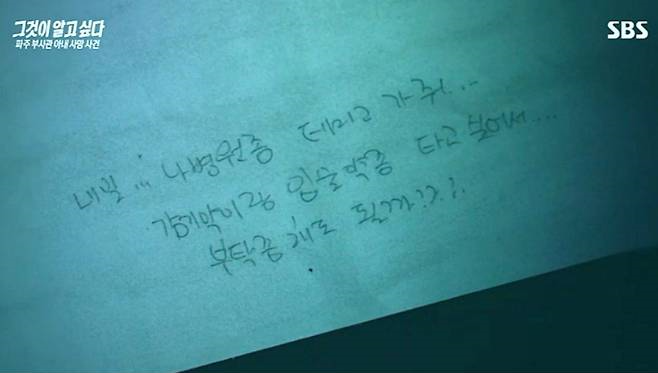 그것이 알고 싶다
파주 부사관 아내 사망 사건
SBS
내일... 나 병원좀 데리고 가줘...
감기약이랑 입술약좀 타고 싶어서....
부탁좀 해도 될까???